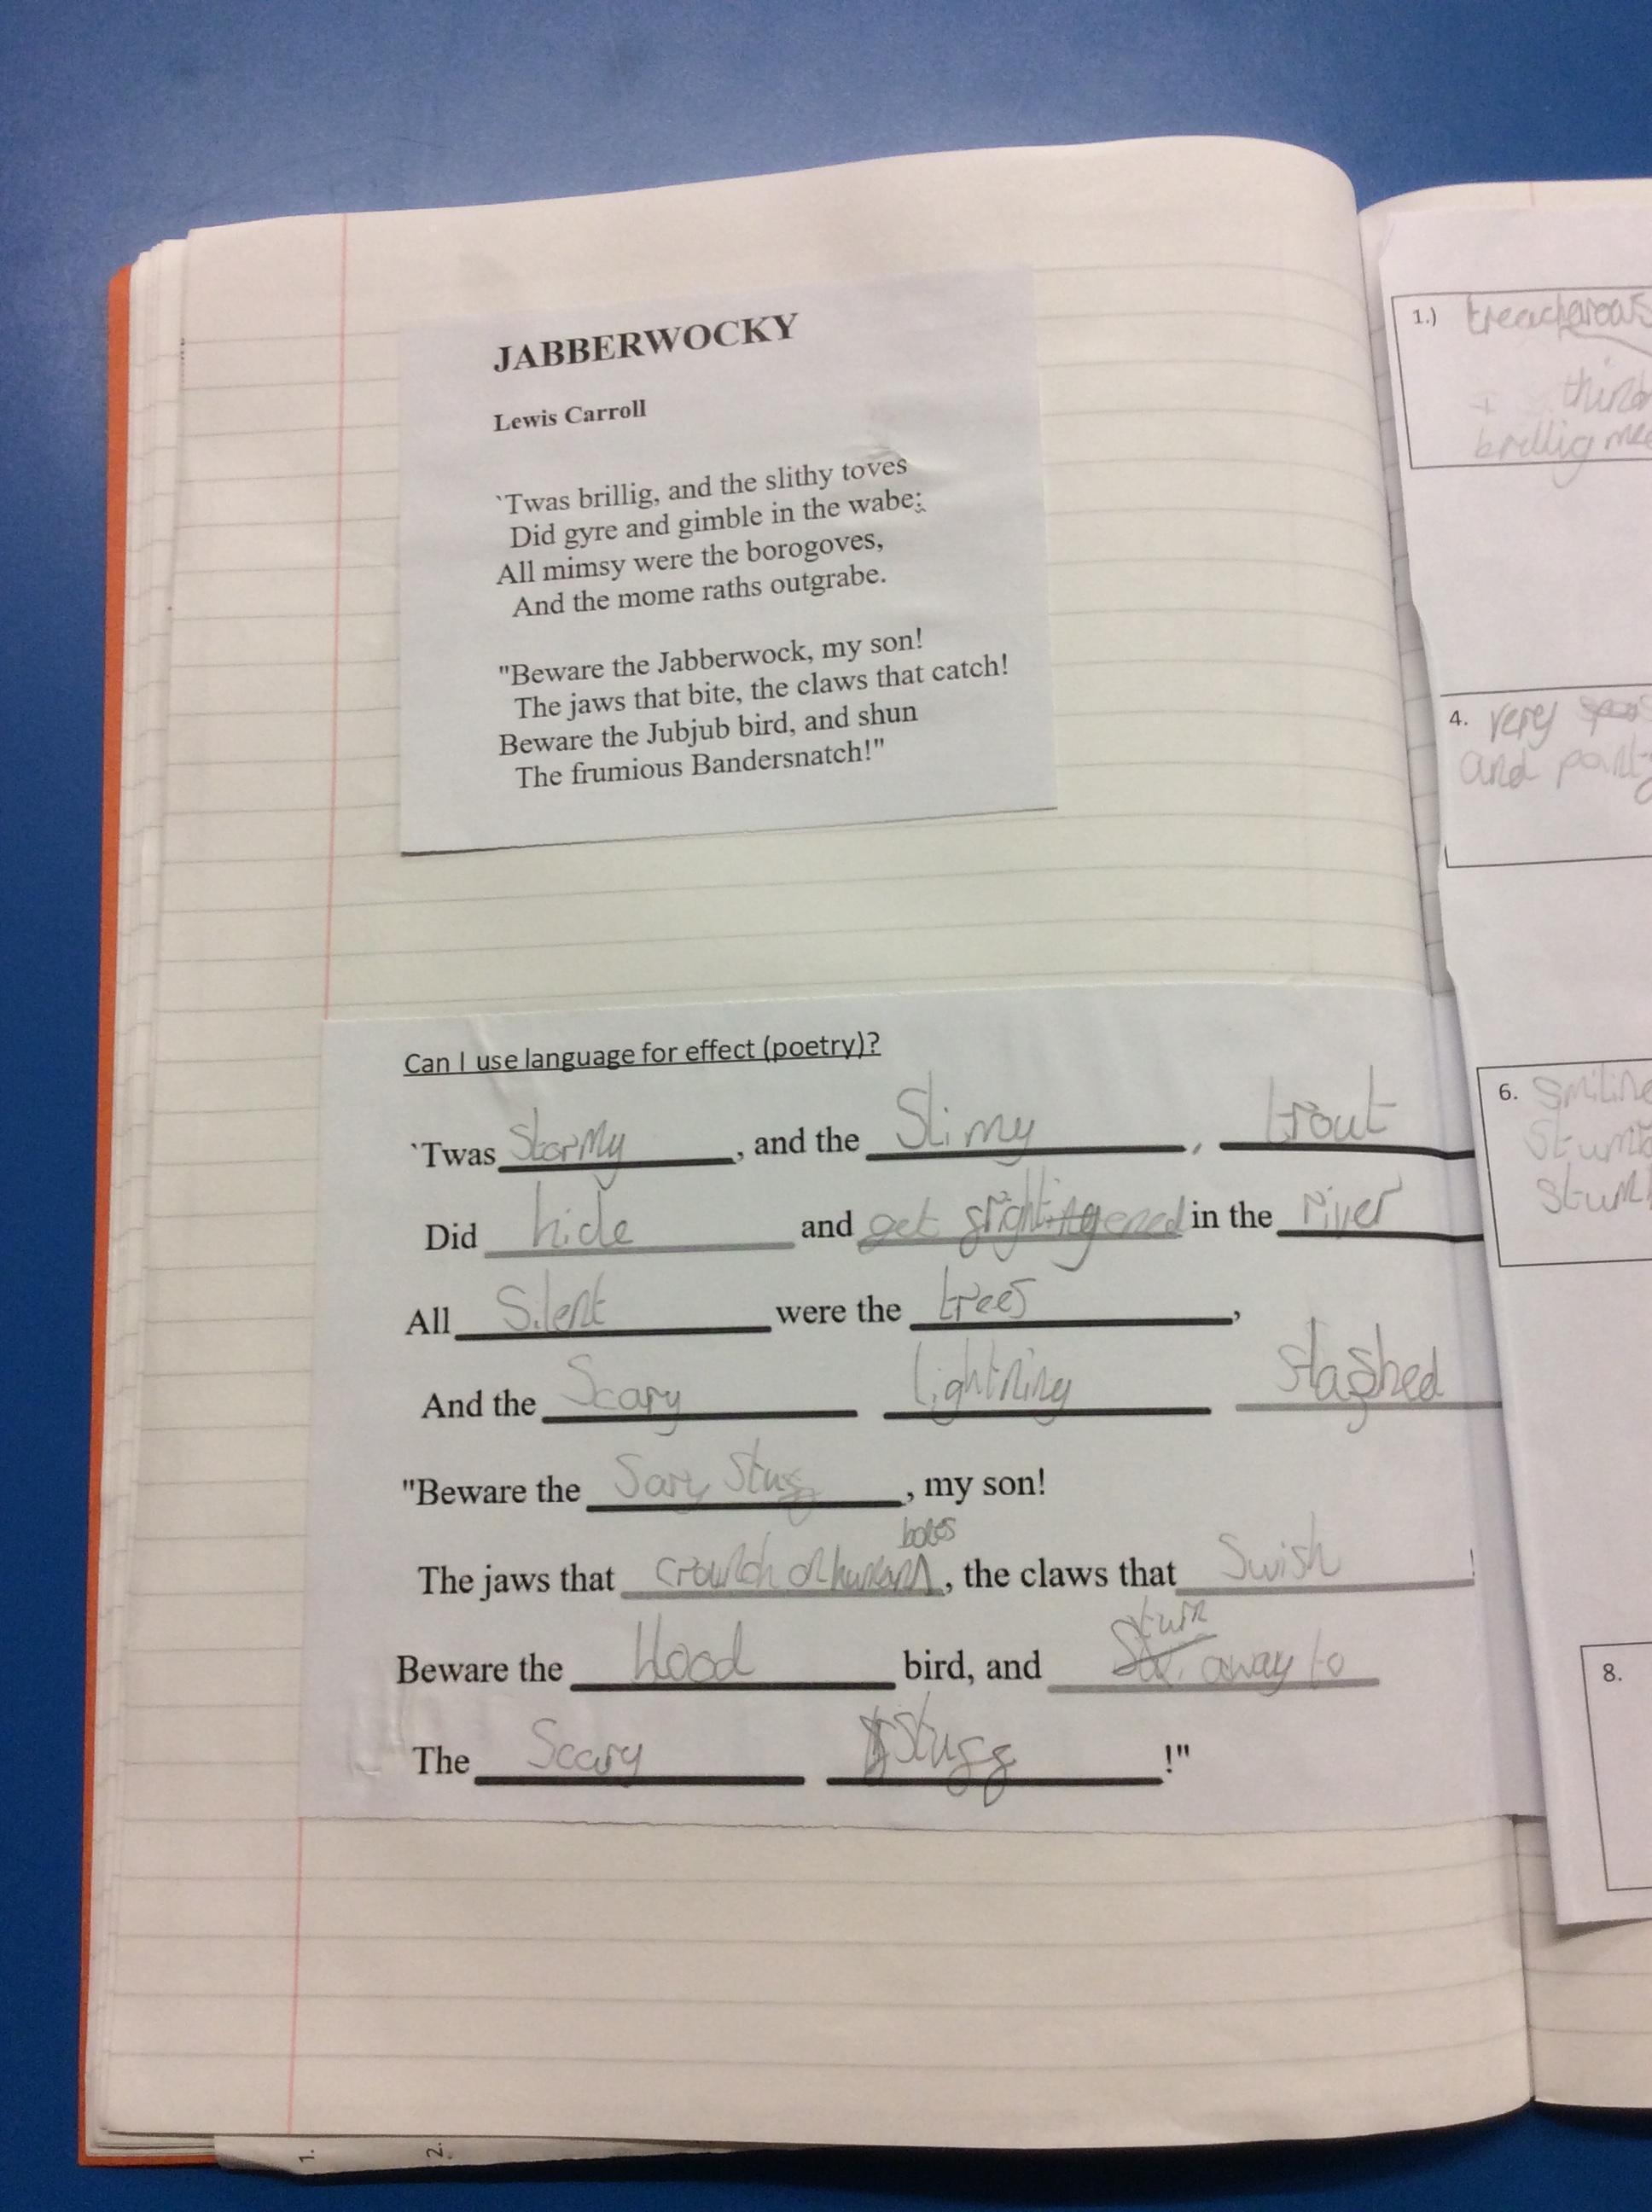 JABBERWOCKY
Lewis Carroll
`Twas brillig, and the slithy toves
Did gyre and gimble in the wabe:
All mimsy were the borogoves,
And the mome raths outgrabe.
"Beware the Jabberwock, my son!
The jaws that bite, the claws that catch!
Beware the Jubjub bird, and shun
The frumious Bandersnatch!"
Can I use language for effect (poetry)?
`Twas Stormy, and the Slimy, trout
Did hide and get in the river
All Silent were the trees,
And the Scary lightning
"Beware the , my son!
The jaws that , the claws that Swish!
Beware the blood bird, and turn away to
The Scary Stugg!"
1.)
brillig
4. very
and
6.
8.
1.
2.